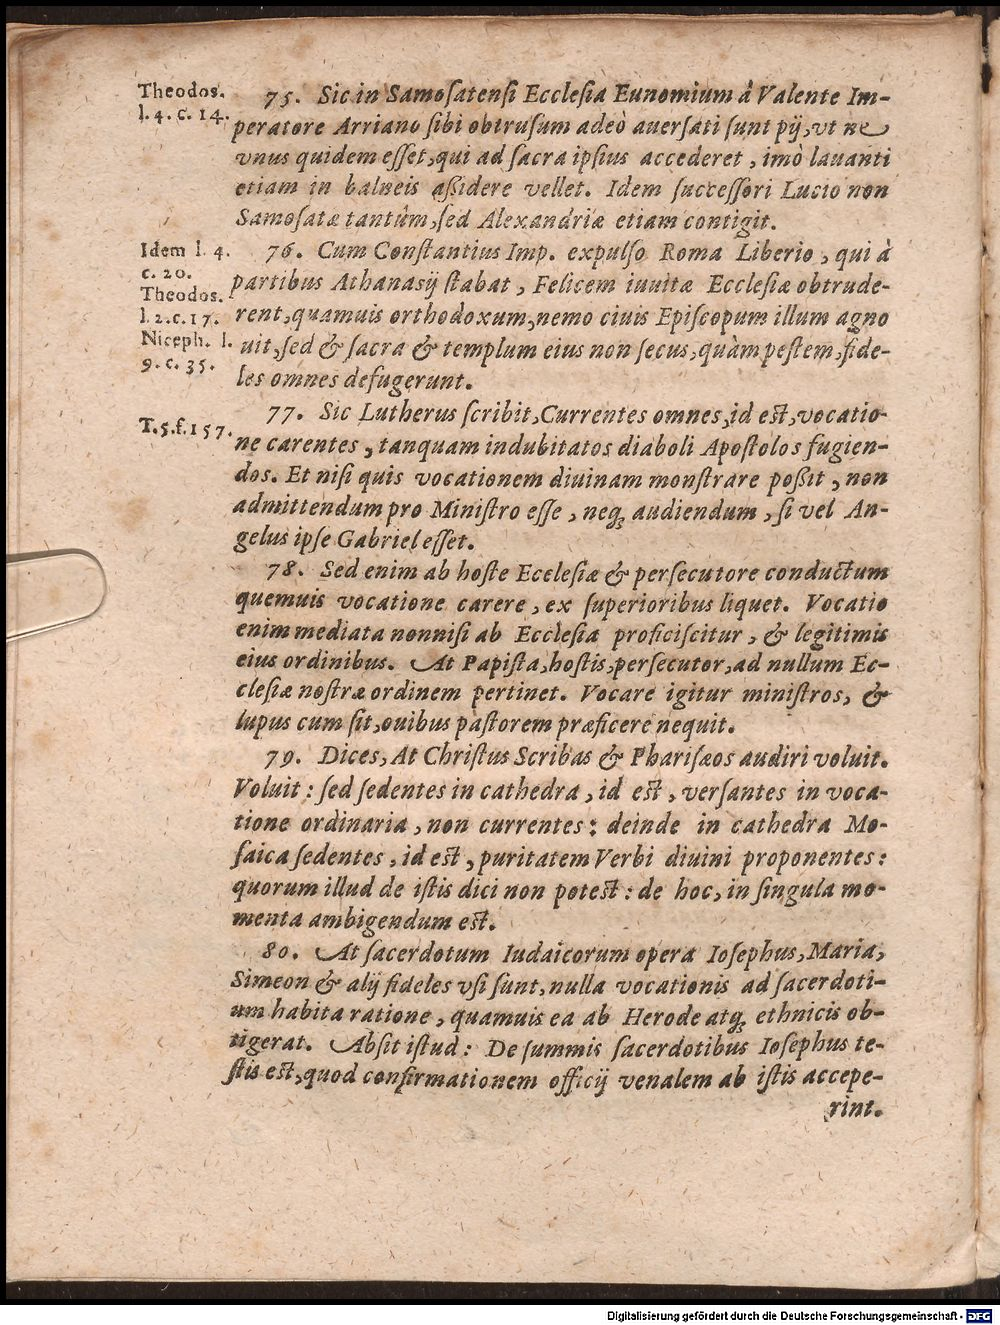 Theodos.
l. 4. c. 14.
75. Sic in Samoſatenſi Eccleſia Eunomium à Valente Im-
peratore Arriano ſibi obtruſum adeò auerſati ſunt pij, vt ne
vnus quidem eſſet, qui ad ſacra ipſius accederet, imò lauanti
etiam in balneis aßidere vellet. Idem ſucceſſori Lucio non
Samoſatæ tantûm, ſed Alexandriæ etiam contigit.
Idem l. 4.
c. 20.
Theodos.
l. 2. c. 17.
Niceph. l.
9. c. 35.
76. Cum Conſtantius Imp. expulſo Roma Liberio, qui à
partibus Athanasij ſtabat, Felicem iuuitæ Eccleſiæ obtrude-
rent, quamuis orthodoxum, nemo ciuis Epiſcopum illum agno
uit, ſed & ſacra & templum eius non ſecus, quàm peſtem, fide-
les omnes defugerunt.
T. 5. f. 157.
77. Sic Lutherus ſcribit, Currentes omnes, id est, vocatio-
ne carentes, tanquam indubitatos diaboli Apoſtolos fugien-
dos. Et niſi quis vocationem diuinam monſtrare poßit, non
admittendum pro Miniſtro eſſe, neq; audiendum, ſi vel An-
gelus ipſe Gabriel eſſet.
78. Sed enim ab hoſte Eccleſiæ & perſecutore conductum
quemuis vocatione carere, ex ſuperioribus liquet. Vocatio
enim mediata nonniſi ab Eccleſia proficiſcitur, & legitimis
eius ordinibus. At Papiſta, hoſtis, perſecutor, ad nullum Ec-
cleſiæ noſtræ ordinem pertinet. Vocare igitur miniſtros, &
lupus cum ſit, ouibus paſtorem præficere nequit.
79. Dices, At Chriſtus Scribas & Phariſæos audiri voluit.
Voluit: ſed ſedentes in cathedra, id est, verſantes in voca-
tione ordinaria, non currentes: deinde in cathedra Mo-
ſaica ſedentes, id est, puritatem Verbi diuini proponentes:
quorum illud de iſtis dici non potest: de hoc, in ſingula mo-
menta ambigendum est.
80. At ſacerdotum Iudaicorum opera Ioſephus, Maria,
Simeon & alij fideles vſi ſunt, nulla vocationis ad ſacerdoti-
um habita ratione, quamuis ea ab Herode atq; ethnicis ob-
tigerat. Abſit iſtud: De ſummis ſacerdotibus Ioſephus te-
ſtis est, quod confirmationem officij venalem ab iſtis accepe-
rint.
Digitalisierung gefördert durch die Deutsche Forschungsgemeinschaft - DFG